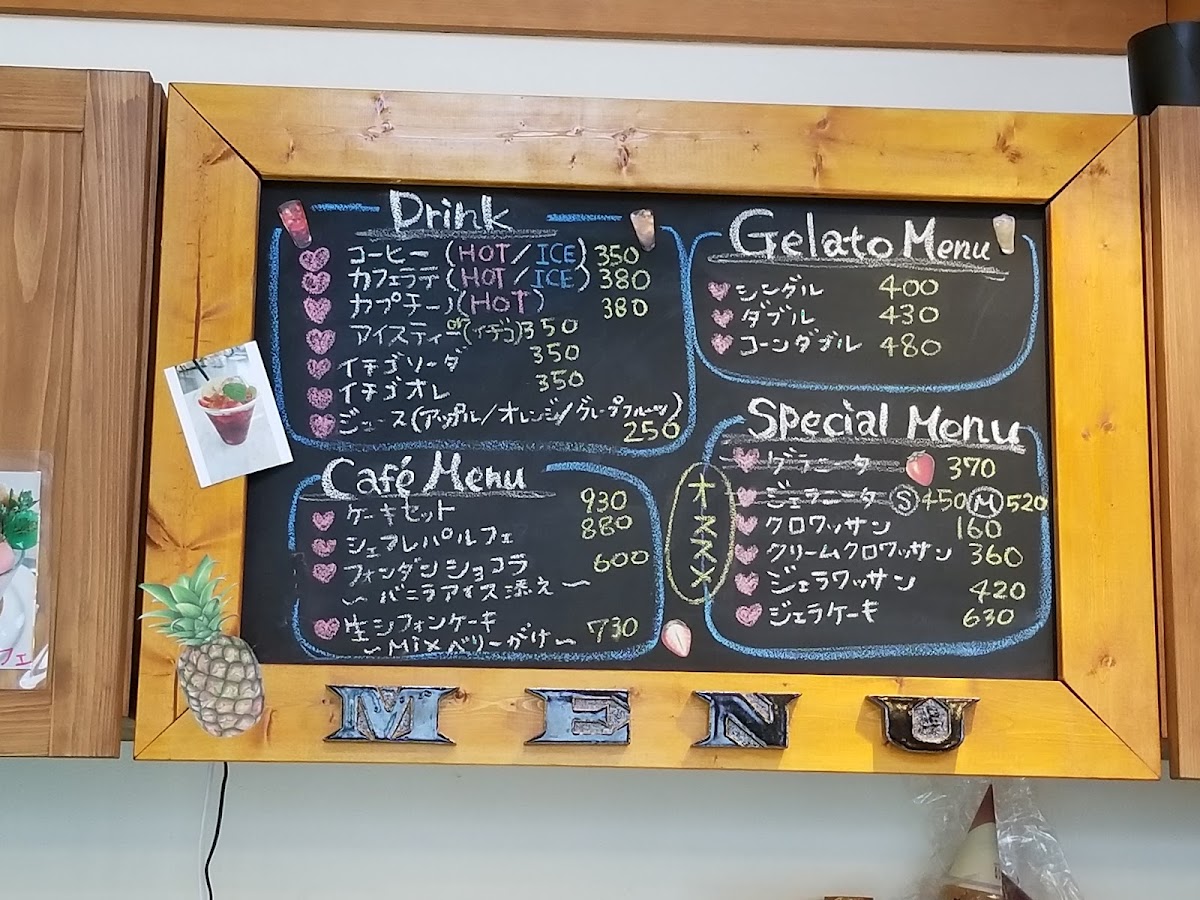 Drink
コーヒー (HOT/ICE) 350
カフェラテ (HOT/ICE) 380
カプチーノ(HOT) 380
アイスティー(イチゴ)350
イチゴソーダ 350
イチゴオレ 350
ジュース(アップル/オレンジ/グレープフルーツ)
250
Café Menu
ケーキセット 930
シェアレパルフェ 880
フォンダンショコラ 600
〜バニラアイス添え〜
生シフォンケーキ 730
〜Mixベリーがけ〜
Gelato Menu
シングル 400
ダブル 430
コーンダブル 480
オススメ
Special Menu
グラニータ 370
ジェラニータ Ⓢ450 Ⓜ520
クロワッサン 160
クリームクロワッサン 360
ジェラワッサン 420
ジェラケーキ 630
MENU
フェ